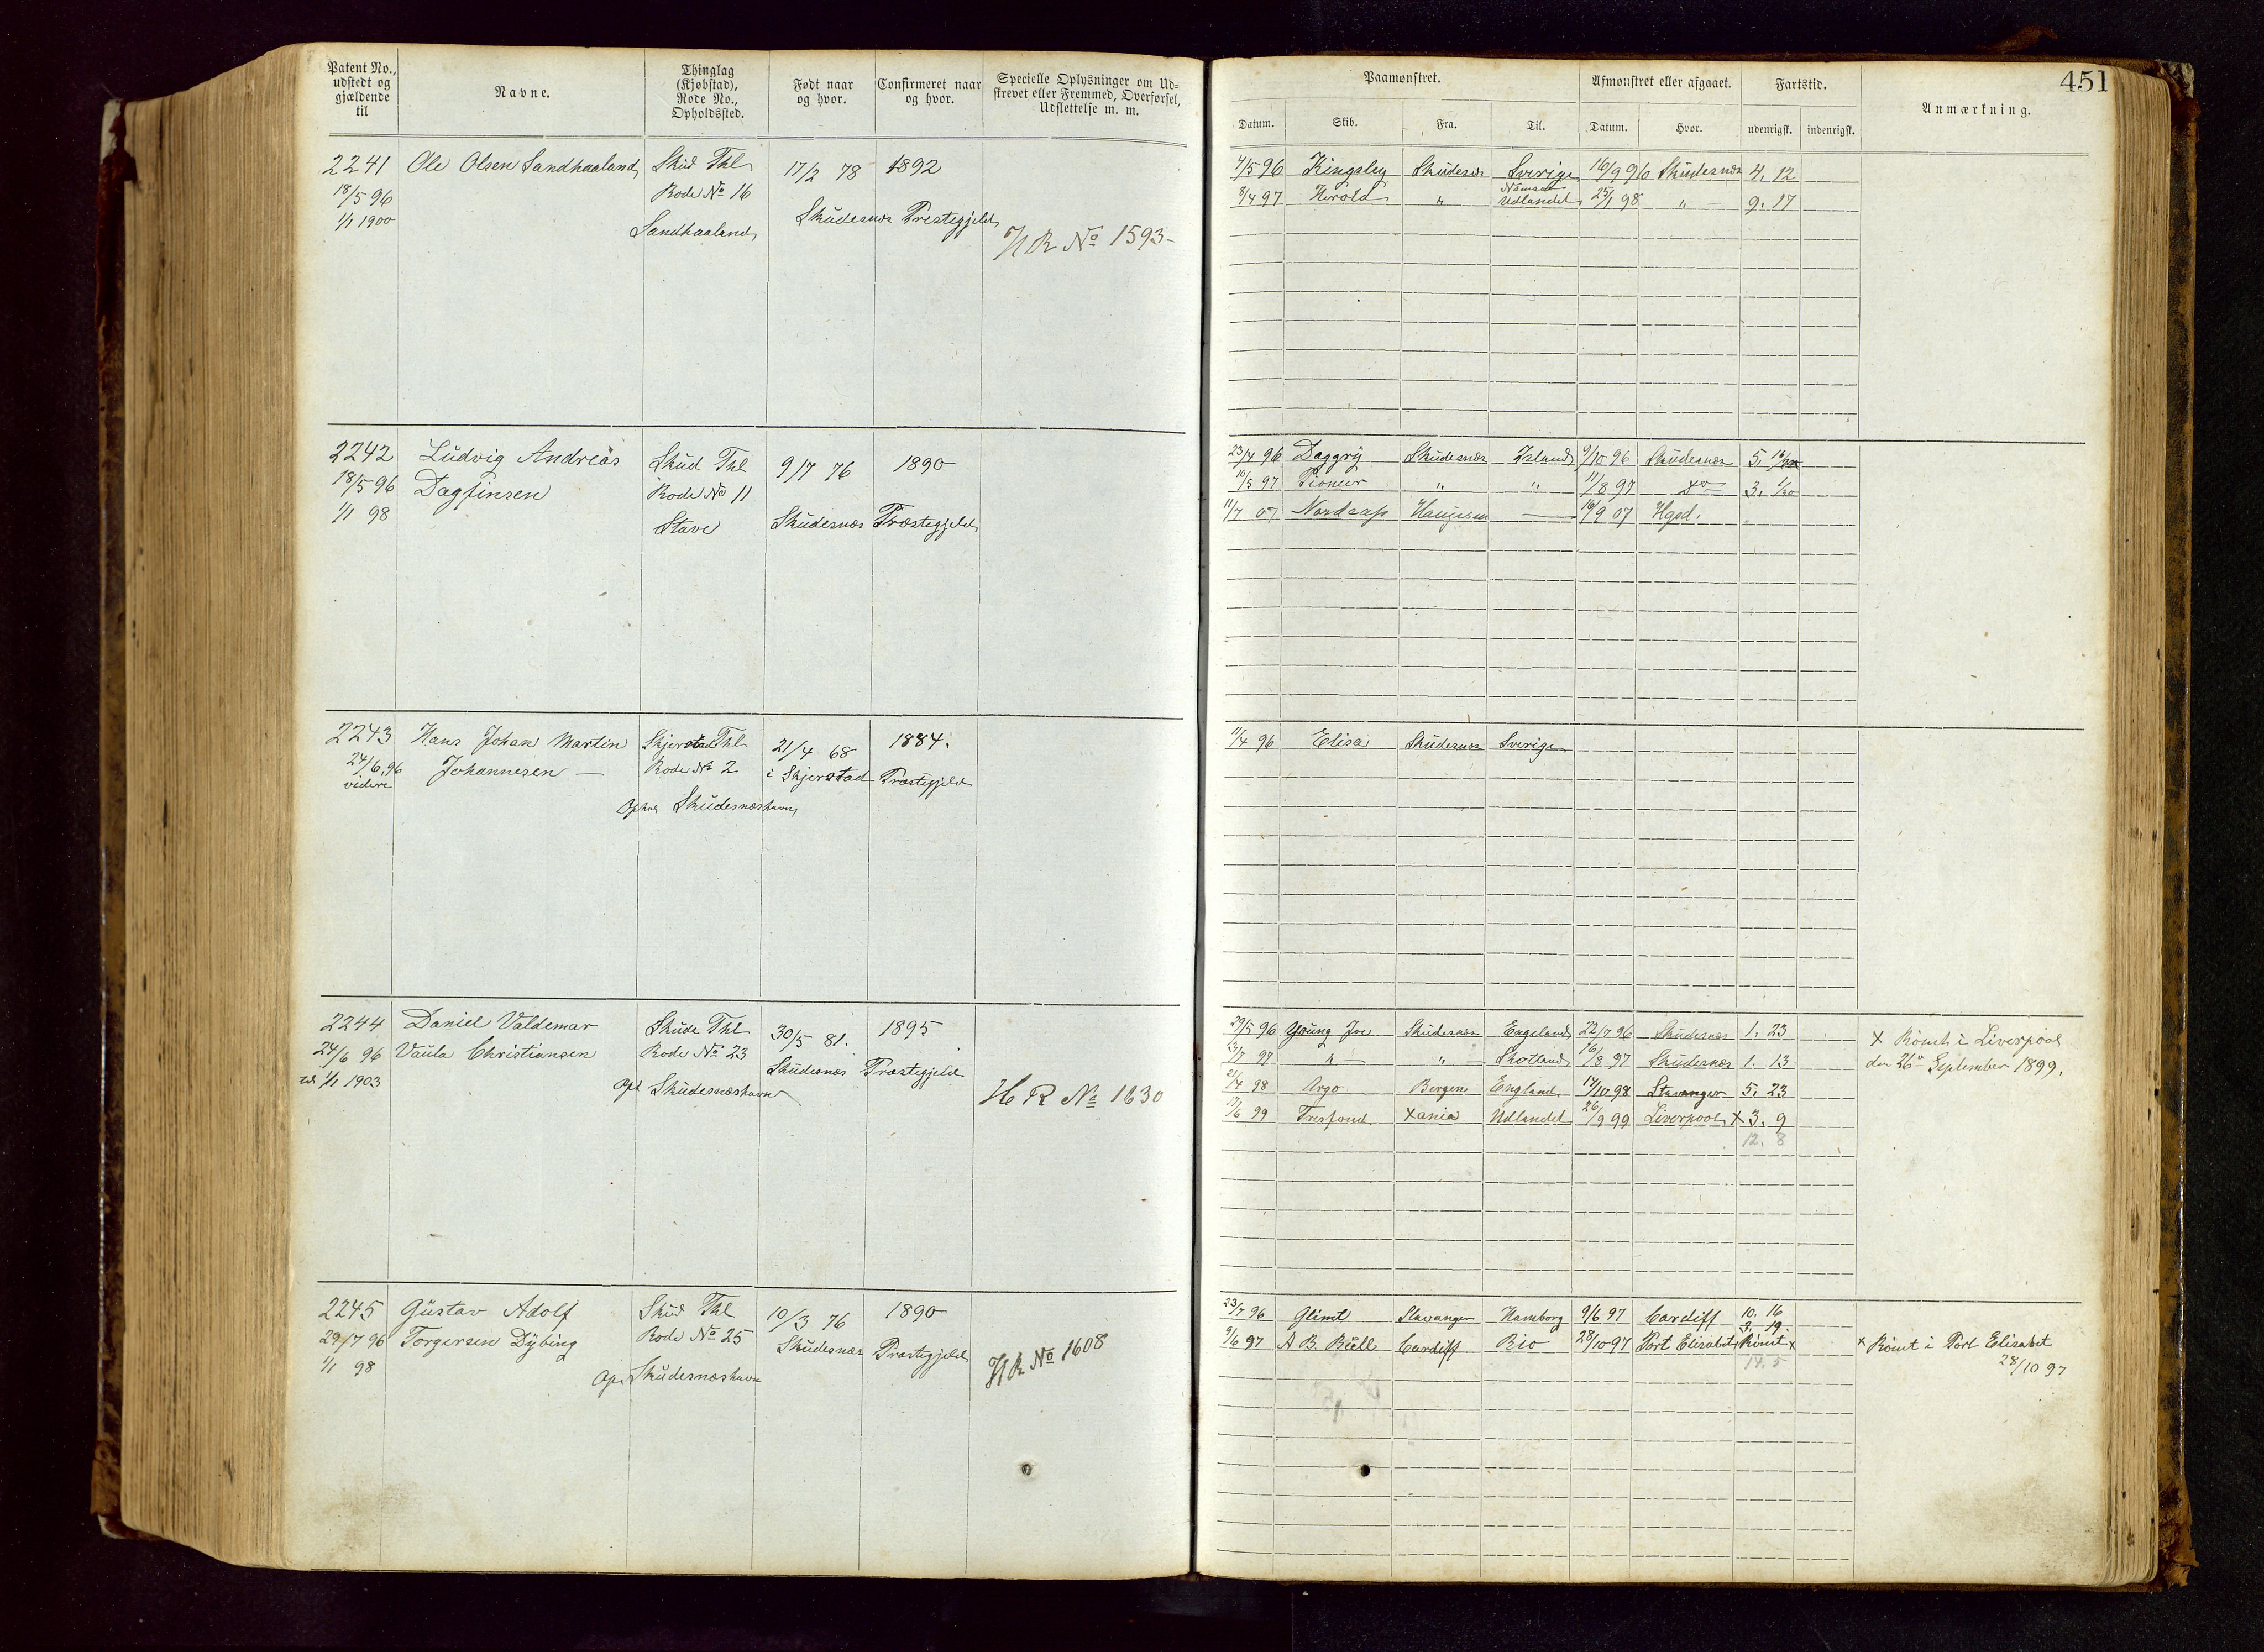 Patent No., udstedt og gjældende til
Navne.
Thinglag (Kjøbstad), Rode No., Opholdssted.
Født naar og hvor.
Confirmeret naar og hvor.
Specielle Oplysninger om Udskrevet eller Fremmed, Overførsel, Udslettelse m. m.
2241 Ole Olsen Sandhaaland Skud Thl 17/2 78 1892
18/5 96 Rode No 16
1/1 1900 Sandhaaland Skudesnæs Præstegjeld
R No 1593
2242 Ludvig Andreas Skud Thl 9/7 76 1890
18/5 96 Dagfinsen Rode No 11
1/1 98 Stave Skudesnæs Præstegjeld
2243 Hans Johan Martin Skjerstad Thl 21/4 68 1884.
24/6 96 Johannesen — Rode No 2 i Skjerstad Præstegjeld
videre
Skudesnæshavn
2244 Daniel Valdemar Skude Thl 30/5 81. 1895
24/6 96 Vaula Christiansen Rode No 23 Skudesnæs Præstegjeld
til 1/1 1903 Opl Skudesnæshavn
H R No 1630
2245 Gustav Adolf Skud Thl 10/3 76 1890
29/7 96 Torgersen Dybing Rode No 25 Skudesnæs Præstegjeld
1/1 98 Op. Skudesnæshavn
H R No 1608
451
Paamønstret.
Afmønstret eller afgaaet.
Fartstid.
Anmærkning.
Datum. Skib. Fra. Til. Datum. Hvor. udenrigsk. indenrigsk.
4/5 96 Kingsley Skudesnæs Sverige 16/9 96 Skudesnæs 4. 12
8/4 97 Herold " Udlandet 25/1 98 " — 9. 17
23/4 96 Daggry Skudesnæs Island 9/10 96 Skudesnæs 5.
10/5 97 Pioneer " " 11/8 97 do 3.
11/7 07 Nordcap — 16/9 07 Hgsd.
11/4 96 Elisa Skudesnæs Sverige
29/5 96 Young Joe Skudesnæs England 22/7 96 Skudesnæs 1. 23
97 " — " — Skotland 16/8 97 Skudesnæs 1. 13
21/4 98 Argo Bergen England 14/10 98 Stavanger 5. 23
17/6 99 Tresfond Xania Udlandet 26/9 99 Liverpool X 3. 9
12. 8
X Rømt i Liverpool
den 26 September 1899.
23/7 96 Glimt Stavanger Hamborg 9/6 97 Cardiff 10. 16
3. 19.
9/6 97 A. B. Bull Cardiff Rio 28/10 97 Port Elisabet Rømt x
14. 5
x Rømt i Port Elisabet
28/10 97